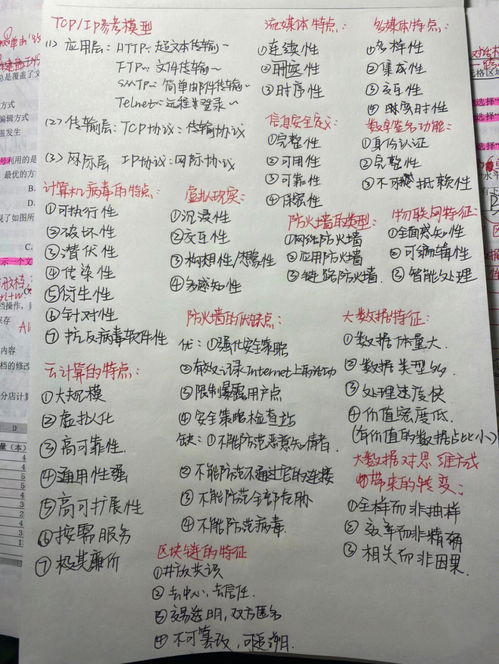 TCP/IP参考模型
(1) 应用层: HTTP~超文本传输~
FTP~ 文件传输~
SMTP~ 简单邮件传输~
Telnet~远程登录~
(2) 传输层: TCP协议: 传输协议
(3) 网际层 IP协议: 网际协议
流媒体特点:
①连续性
②
③时序性
多媒体特点:
①多样性
②集成性
③交互性
④实时性
信息安全定义:
①完整性
②可用性
③可靠性
④保密性
数字签名功能:
①身份认证
②完整性
③不可抵赖性
计算机病毒的特点:
①可执行性
②破坏性
③潜伏性
④传染性
⑤衍生性
⑥针对性
⑦抗反病毒软件性
虚拟现实:
①沉浸性
②交互性
③构想性/想象性
④多感知性
防火墙的类型:
①网络防火墙
②应用防火墙
③链路防火墙.
物联网特征:
①全面感知性
②可编辑性
③智能处理
云计算的特点:
①大规模
②虚拟化
③高可靠性.
④通用性强
⑤高可扩展性
⑥按需服务
⑦极其廉价
防火墙的优缺点:
优: ①强化安全策略
②有效记录Internet上的活动
③限制暴露用户点
④安全策略检查站
缺: ①不能防范恶意知情者.
②不能防范不通过它的连接
③不能防范全部威胁
④不能防范病毒.
大数据特征:
①数据体量大.
②数据类型多
③处理速度快
④价值密度低.
(有价值的数据占比小)
大数据对思维方式
带来的转变:
①全样而非抽样
②效率而非精确
③相关而非因果.
区块链的特征
①开放共识
②去中心, 去信任.
③交易透明, 双方匿名
④不可篡改, 可追溯.